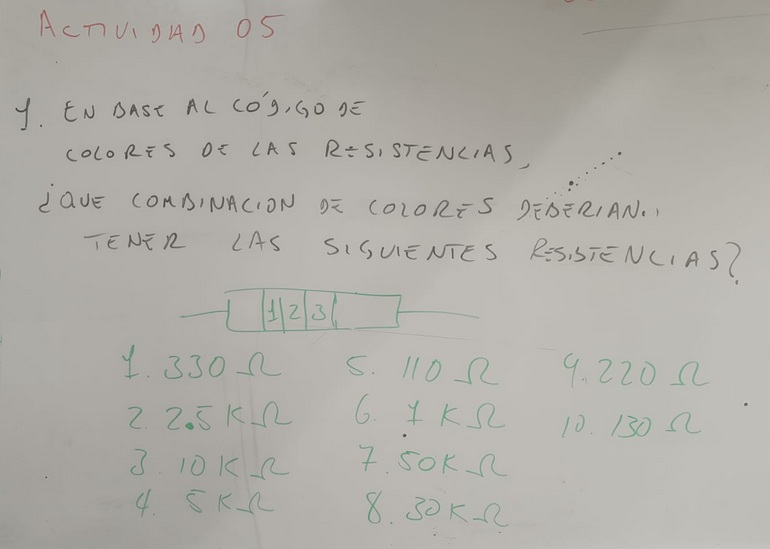 ACTIVIDAD 05
1. EN BASE AL CÓDIGO DE
COLORES DE LAS RESISTENCIAS,
¿QUE COMBINACION DE COLORES DEBERIAN
TENER LAS SIGUIENTES RESISTENCIAS?
1 2 3
1. 330 Ω
2. 2.5 K Ω
3. 10 K Ω
4. 5 K Ω
5. 110 Ω
6. 1 K Ω
7. 50K Ω
8. 30K Ω
9. 220 Ω
10. 130 Ω